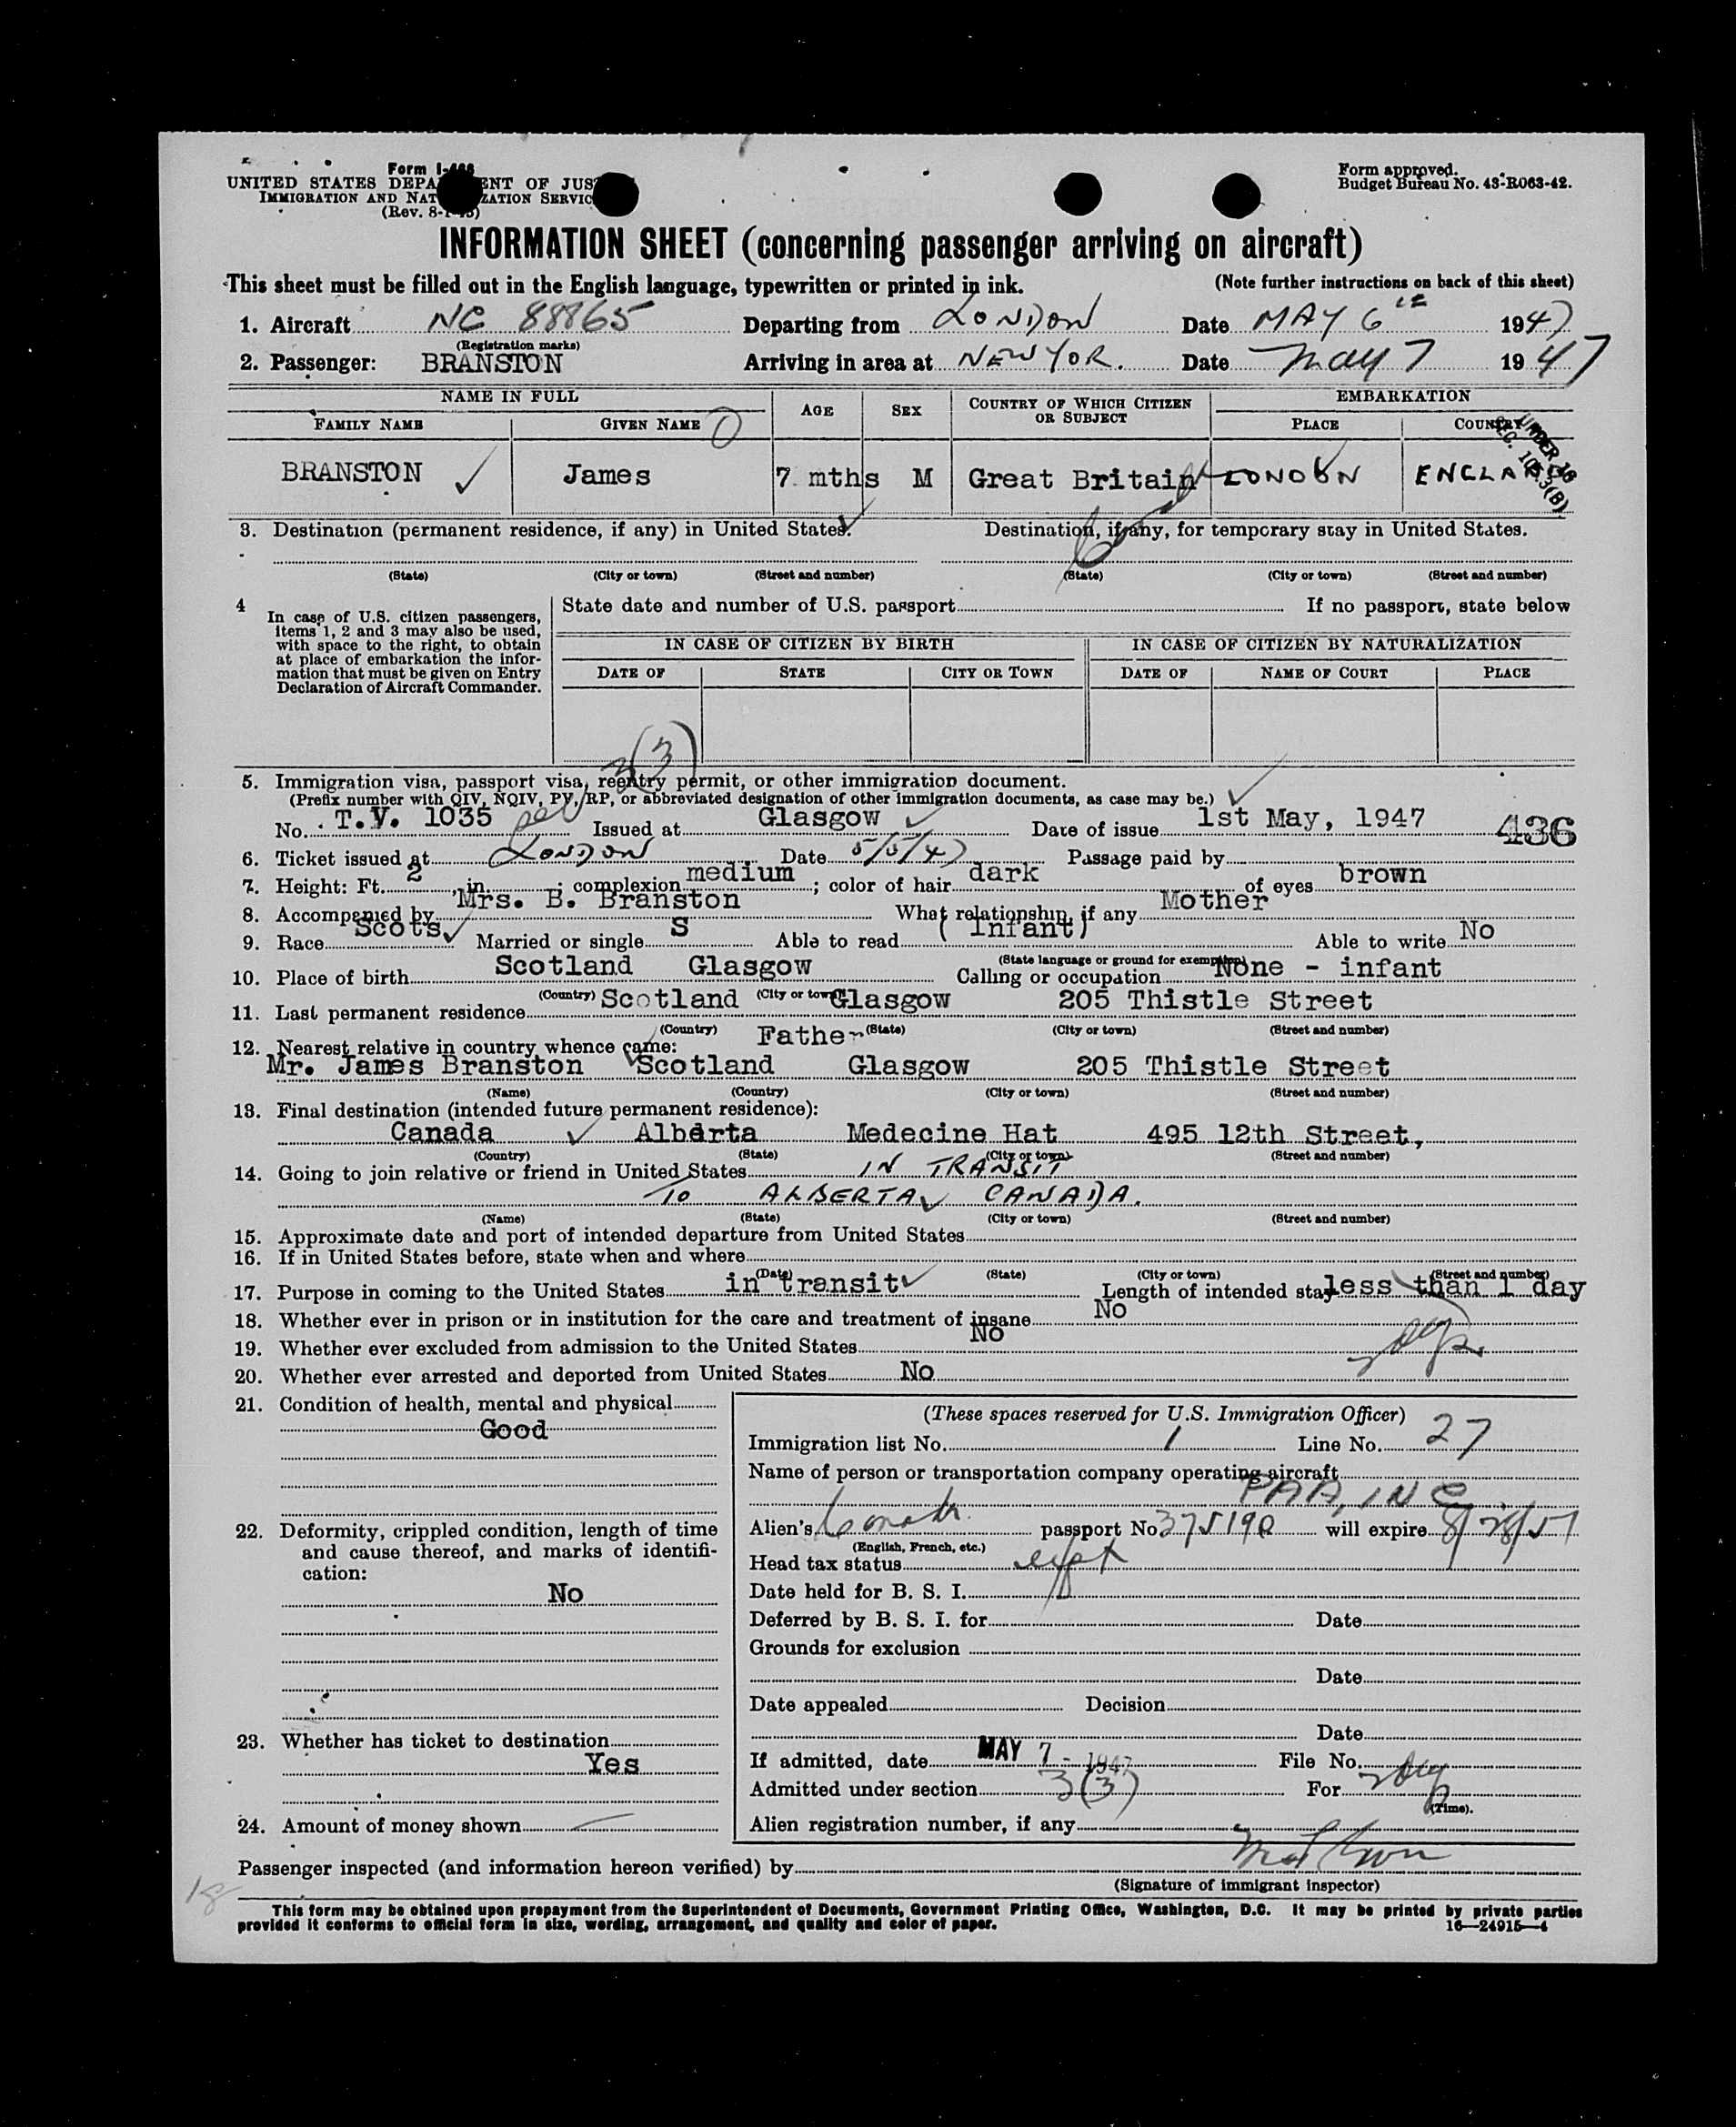 Form I-466
UNITED STATES DEPA ENT OF JUS
IMMIGRATION AND NAT ZATION SERVIC
(Rev. 8-1-45)
Form approved.
Budget Bureau No. 43-R063-42.
INFORMATION SHEET (concerning passenger arriving on aircraft)
This sheet must be filled out in the English language, typewritten or printed in ink. (Note further instructions on back of this sheet)
1. Aircraft NC 88865 Departing from LONDON Date MAY 6th 1947
(Registration marks)
2. Passenger: BRANSTON Arriving in area at NEW YOR. Date May 7 1947
NAME IN FULL AGE SEX COUNTRY OF WHICH CITIZEN OR SUBJECT EMBARKATION
FAMILY NAME GIVEN NAME PLACE COUNTRY
UNDER 16
SEC. 105.3(B)
BRANSTON James 7 mths M Great Britain LONDON ENGLAND
3. Destination (permanent residence, if any) in United States. Destination, if any, for temporary stay in United States.
(State) (City or town) (Street and number) (State) (City or town) (Street and number)
4 In case of U.S. citizen passengers, items 1, 2 and 3 may also be used, with space to the right, to obtain at place of embarkation the information that must be given on Entry Declaration of Aircraft Commander.
State date and number of U.S. passport If no passport, state below
IN CASE OF CITIZEN BY BIRTH IN CASE OF CITIZEN BY NATURALIZATION
DATE OF STATE CITY OR TOWN DATE OF NAME OF COURT PLACE
3(3)
5. Immigration visa, passport visa, reentry permit, or other immigration document.
(Prefix number with QIV, NQIV, PV, RP, or abbreviated designation of other immigration documents, as case may be.)
No. T.V. 1035 Issued at Glasgow Date of issue 1st May, 1947 436
6. Ticket issued at LONDON Date 5/5/47 Passage paid by
7. Height: Ft. 2, in. ; complexion medium ; color of hair dark of eyes brown
8. Accompanied by Mrs. B. Branston What relationship, if any Mother
9. Race Scots Married or single S Able to read ( Infant) Able to write No
(State language or ground for exemption)
10. Place of birth Scotland Glasgow Calling or occupation None - infant
(Country) (City or town)
11. Last permanent residence Scotland Glasgow 205 Thistle Street
(Country) (State) (City or town) (Street and number)
12. Nearest relative in country whence came: Father
Mr. James Branston Scotland Glasgow 205 Thistle Street
(Name) (Country) (City or town) (Street and number)
13. Final destination (intended future permanent residence):
Canada Alberta Medecine Hat 495 12th Street,
(Country) (State) (City or town) (Street and number)
14. Going to join relative or friend in United States IN TRANSIT
TO ALBERTA CANADA.
(Name) (State) (City or town) (Street and number)
15. Approximate date and port of intended departure from United States
16. If in United States before, state when and where
(Date) (State) (City or town) (Street and number)
17. Purpose in coming to the United States in transit Length of intended stay less than 1 day
18. Whether ever in prison or in institution for the care and treatment of insane No
19. Whether ever excluded from admission to the United States No
20. Whether ever arrested and deported from United States No
21. Condition of health, mental and physical
Good
22. Deformity, crippled condition, length of time and cause thereof, and marks of identification:
No
23. Whether has ticket to destination
Yes
24. Amount of money shown —
(These spaces reserved for U.S. Immigration Officer)
Immigration list No. 1 Line No. 27
Name of person or transportation company operating aircraft
PAA, INC
Alien's passport No. will expire
(English, French, etc.)
Head tax status
Date held for B. S. I.
Deferred by B. S. I. for Date
Grounds for exclusion
Date
Date appealed Decision
Date
If admitted, date MAY 7 - 1947 File No.
Admitted under section 3(3) For
(Time).
Alien registration number, if any
Passenger inspected (and information hereon verified) by
(Signature of immigrant inspector)
18
This form may be obtained upon prepayment from the Superintendent of Documents, Government Printing Office, Washington, D.C. It may be printed by private parties
provided it conforms to official form in size, wording, arrangement, and quality and color of paper. 16—24915—4